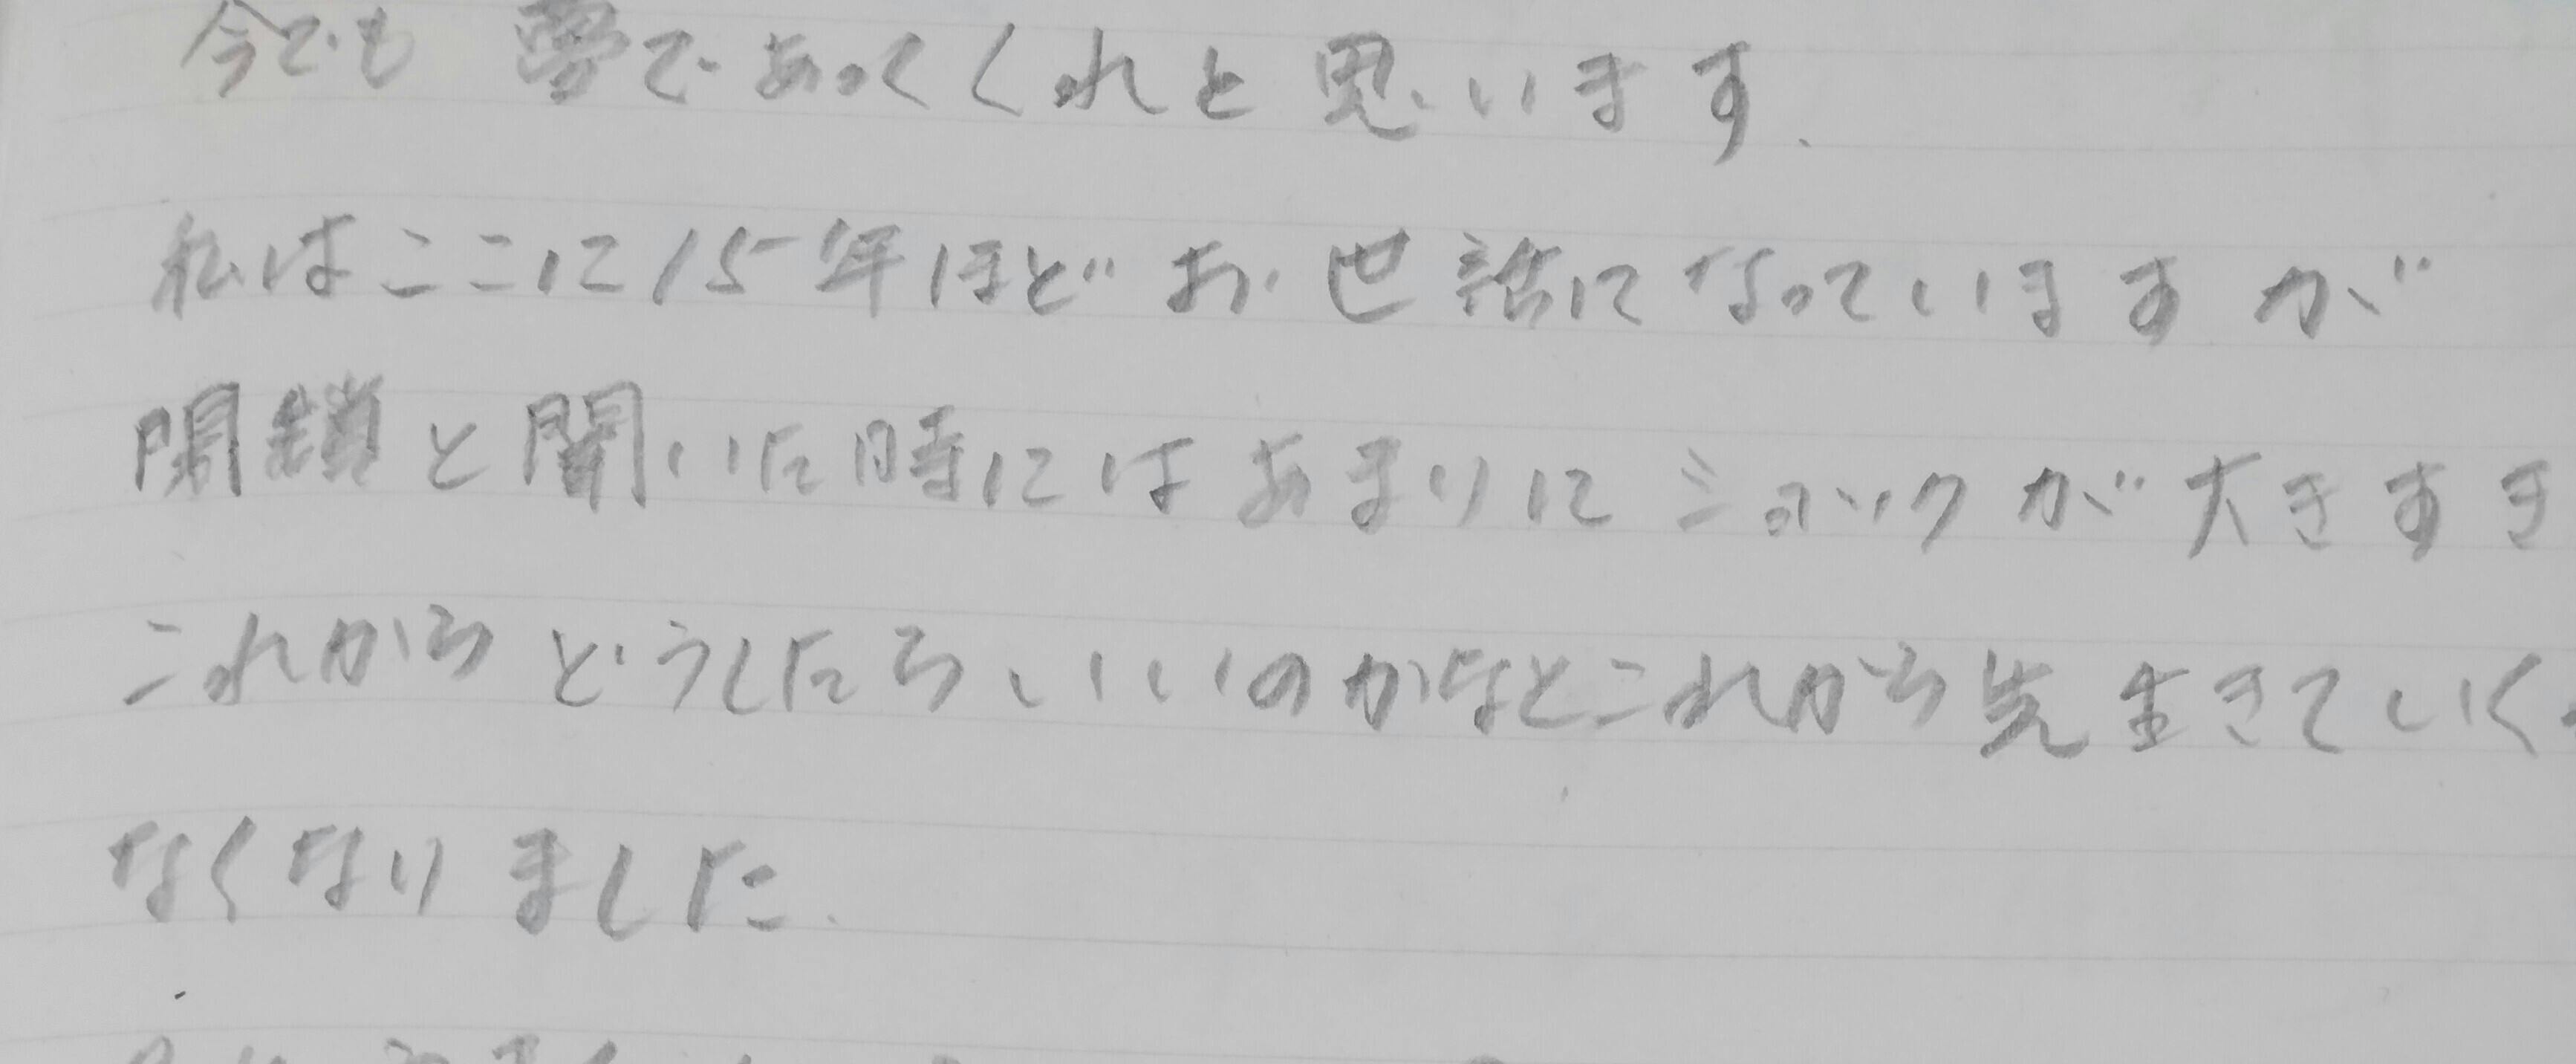 今でも 夢であってくれと思います.
私はここに15年ほどお世話になっていますが
閉鎖と聞いた時にはあまりにショックが大きすぎ
これからどうしたらいいのかなとこれから先生きていく
なくなりました.